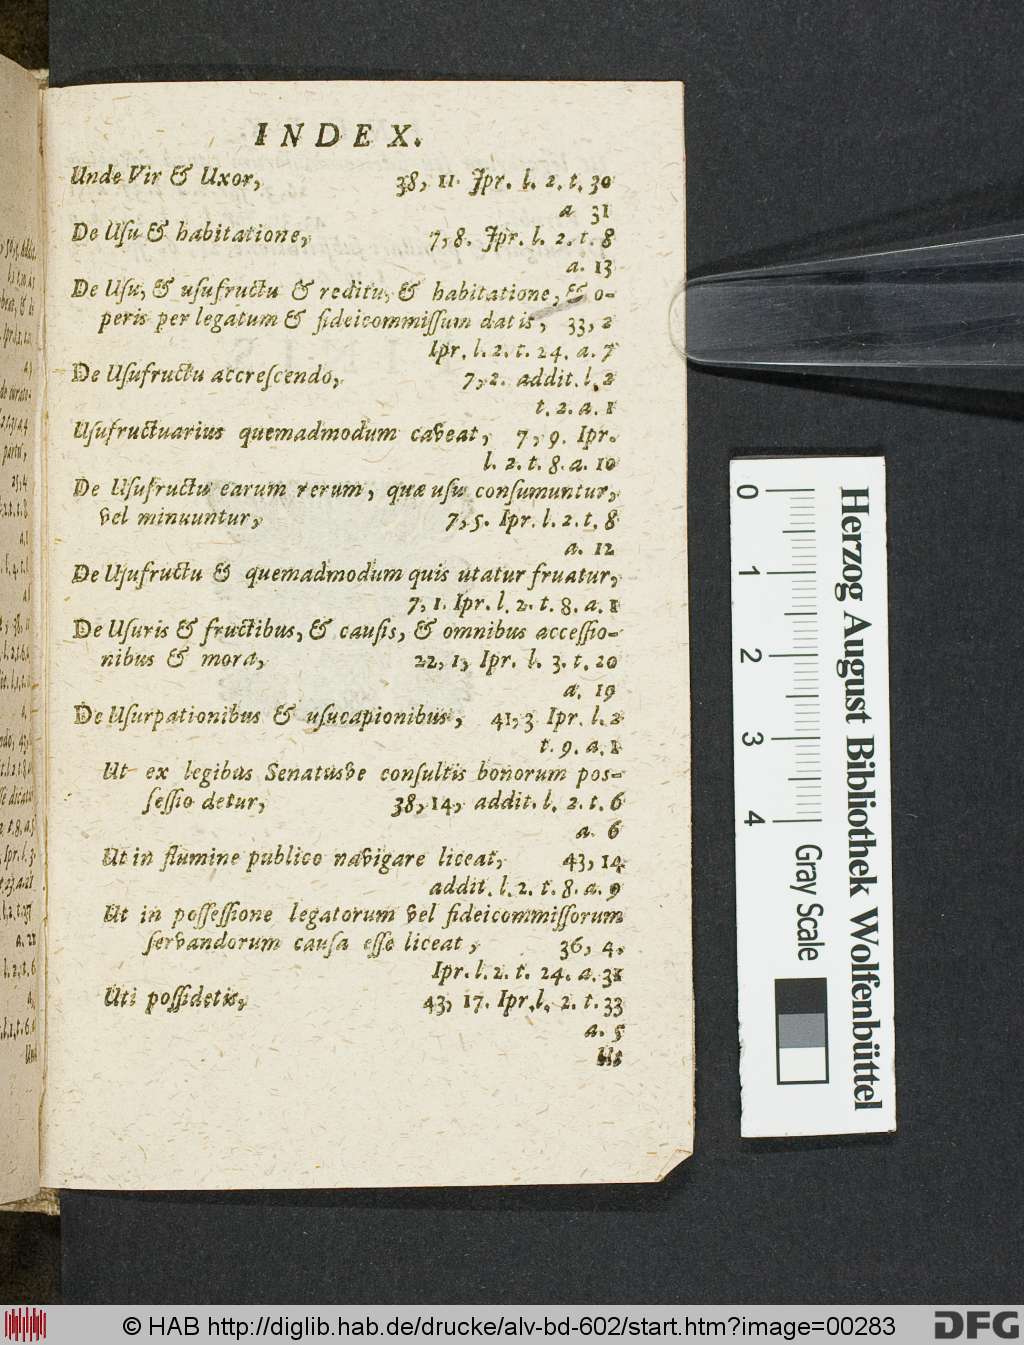 INDEX.
Unde Vir & Uxor, 38, 11. Jpr. l. 2. t. 30
a 31
De Uſu & habitatione, 7, 8. Jpr. l. 2. t. 8
a. 13
De Uſu, & uſufructu & reditu, & habitatione, & o-
peris per legatum & fideicommiſſum datis, 33, 2
Ipr. l. 2. t. 24. a. 7
De Uſufructu accreſcendo, 7, 2. addit. l. 2
t. 2. a. 1
Uſufructuarius quemadmodum caveat, 7, 9. Ipr.
l. 2. t. 8. a. 10
De Uſufructu earum rerum, quæ uſu conſumuntur,
vel minuuntur, 7, 5. Ipr. l. 2. t. 8
a. 12
De Uſufructu & quemadmodum quis utatur fruatur,
7, 1. Ipr. l. 2. t. 8. a. 1
De Uſuris & fructibus, & cauſis, & omnibus acceſſio-
nibus & mora, 22, 1, Ipr. l. 3. t. 20
a. 19
De Uſurpationibus & uſucapionibus, 41, 3 Ipr. l. 2
t. 9. a. 1
Ut ex legibus Senatusve conſultis bonorum poſ-
ſeſſio detur, 38, 14, addit. l. 2. t. 6
a. 6
Ut in flumine publico navigare liceat, 43, 14
addit. l. 2. t. 8. a. 9
Ut in poſſeſſione legatorum vel fideicommiſſorum
ſervandorum cauſa eſſe liceat, 36, 4.
Ipr. l. 2. t. 24. a. 31
Uti poſſidetis, 43, 17. Ipr. l. 2. t. 33
a. 5
Ut
0 1 2 3 4
Gray Scale
Herzog August Bibliothek Wolfenbüttel
© HAB http://diglib.hab.de/drucke/alv-bd-602/start.htm?image=00283
DFG